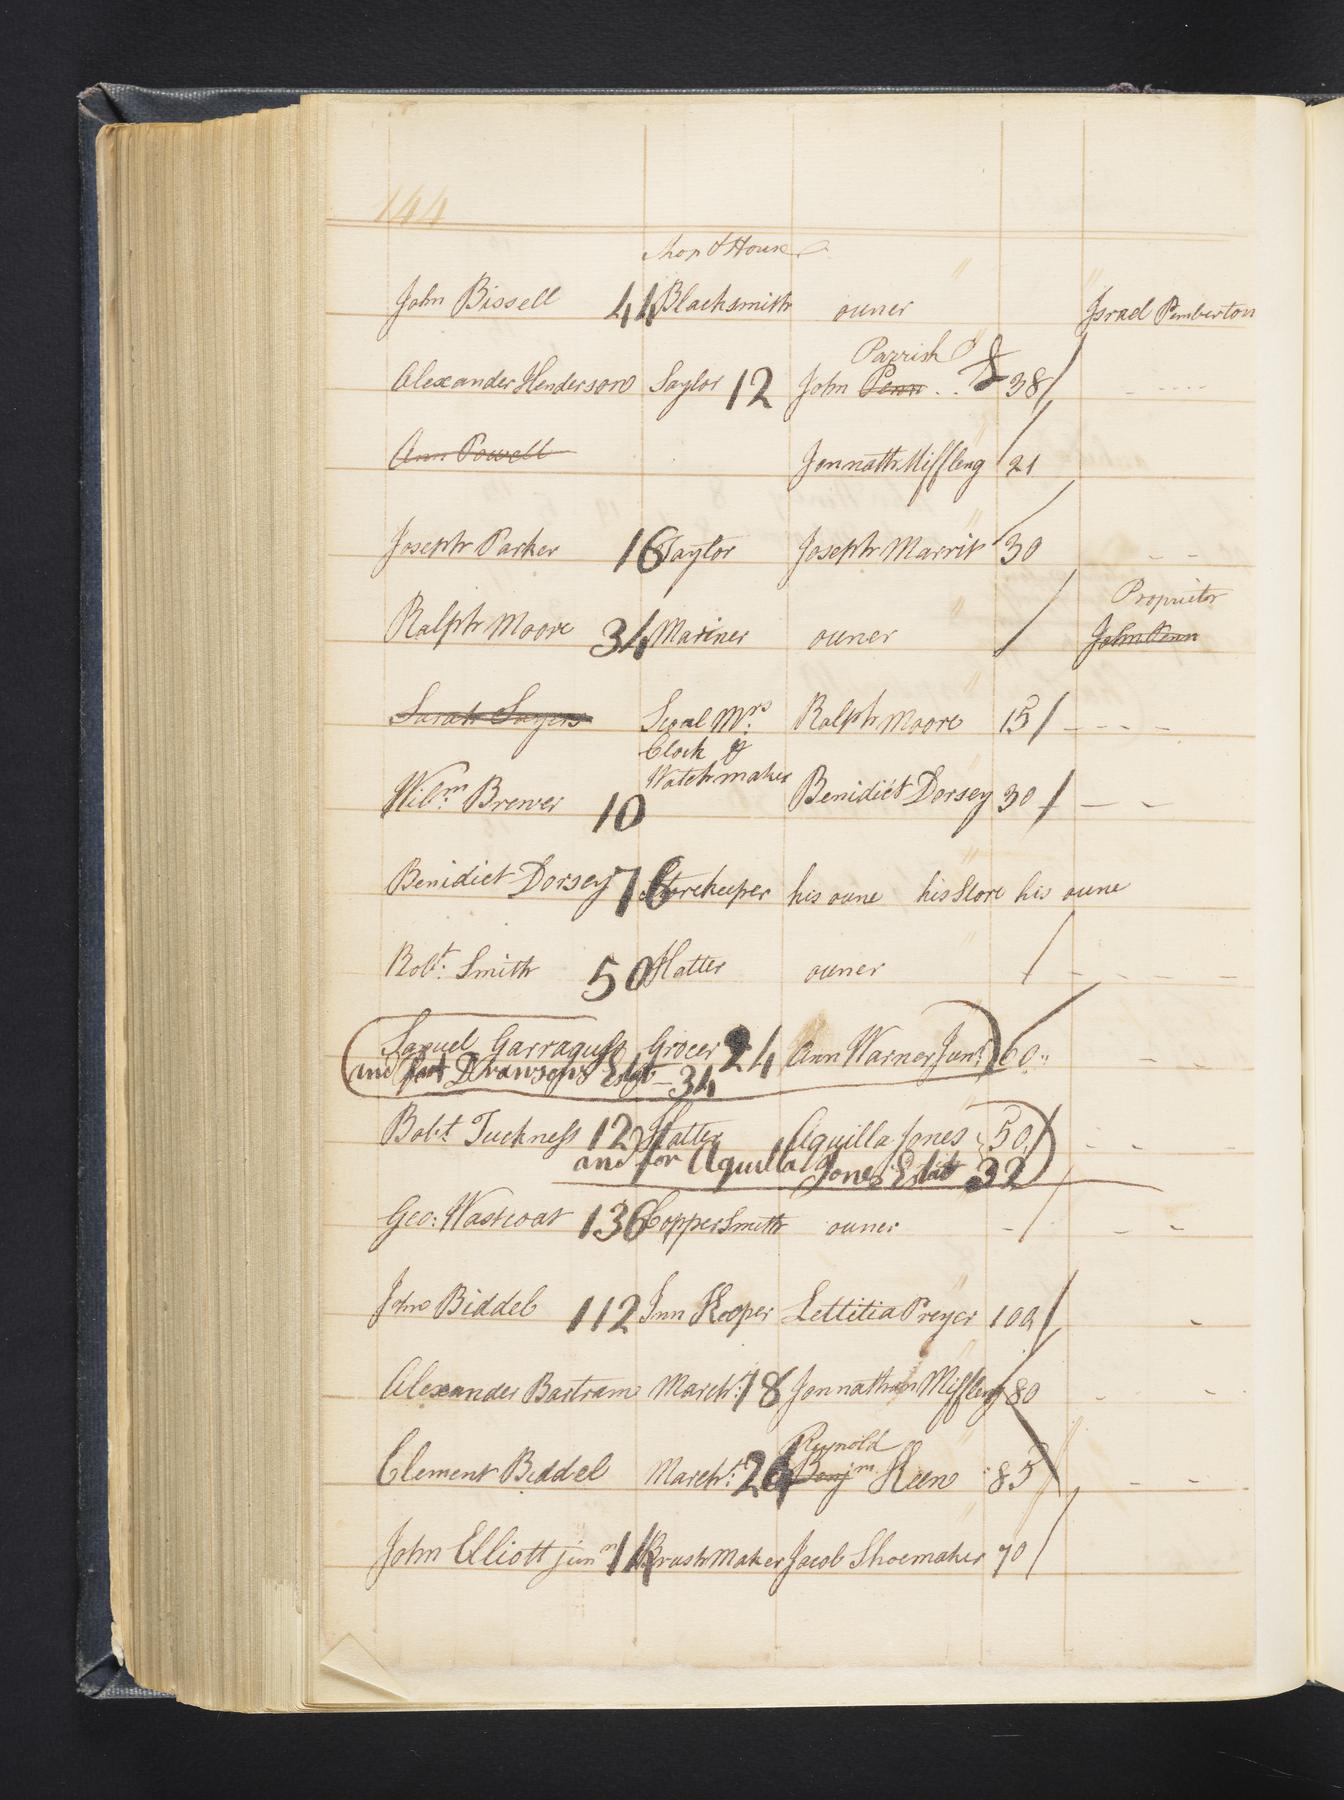 144
Shop & House
John Bissell 44 Blacksmith owner Israel Pemberton
Parrish
Alexander Henderson Taylor 12 John Penn 38/
Ann Powell Jonnath Miffleng / 21
Joseph Parker 16 Taylor Joseph Marrit / 30
Proprietor
Ralph Moore 34 Mariner owner / John Penn
Sarah Sayers Mrs Ralph Moore 15/
Clock &
Watchmaker
Wilm Brewer 10 Benidict Dorsey 30/
Benidict Dorsey 76 Storekeeper his oune his Store his oune
Robt: Smith 50 Hatter owner /
Samuel Garragues Grocer 24 Ann Warner Junr 60
and for Estat 34
Robt Tuckness 122 Hatter Aquilla Jones 50/
and for Aquilla Jones Estat 32
Geo: Wastcoat 136 Coppersmith owner /
John Biddel 112 Inn Keeper Lettitia Preyer 100/
Alexander Bartram Marcht: 18 Jonnathan Miffleng / 80
Reynold
Clement Biddel Marcht: 24 Benjm Keen 85
John Elliott junr 14 Brush Maker Jacob Shoemaker 70/